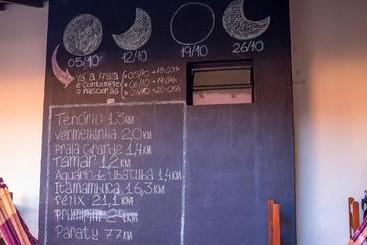 05/10 12/10 19/10 26/10
Vá à praia
e contemple
o nascer às
• 05/10 → 18:03h
• 06/10 →
• 07/10 → 20:05h
Tenório 1,3 km
Vermelhinha 2,0 km
Praia Grande 1,4 km
Tamar 1,2 km
Aquário de Ubatuba 1,4 km
Itamambuca 16,3 km
Félix 21,1 km
Prumirim 24 km
Paraty 77 km